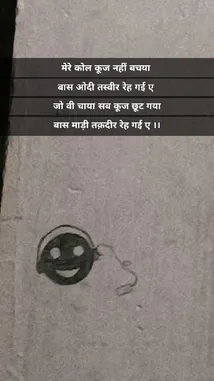 मेरे कोल कूज नहीं बचया
बास ओदी तस्वीर रेह गई ए
जो वी चाया सब कूज छूट गया
बास माड़ी तक़दीर रेह गई ए ।।